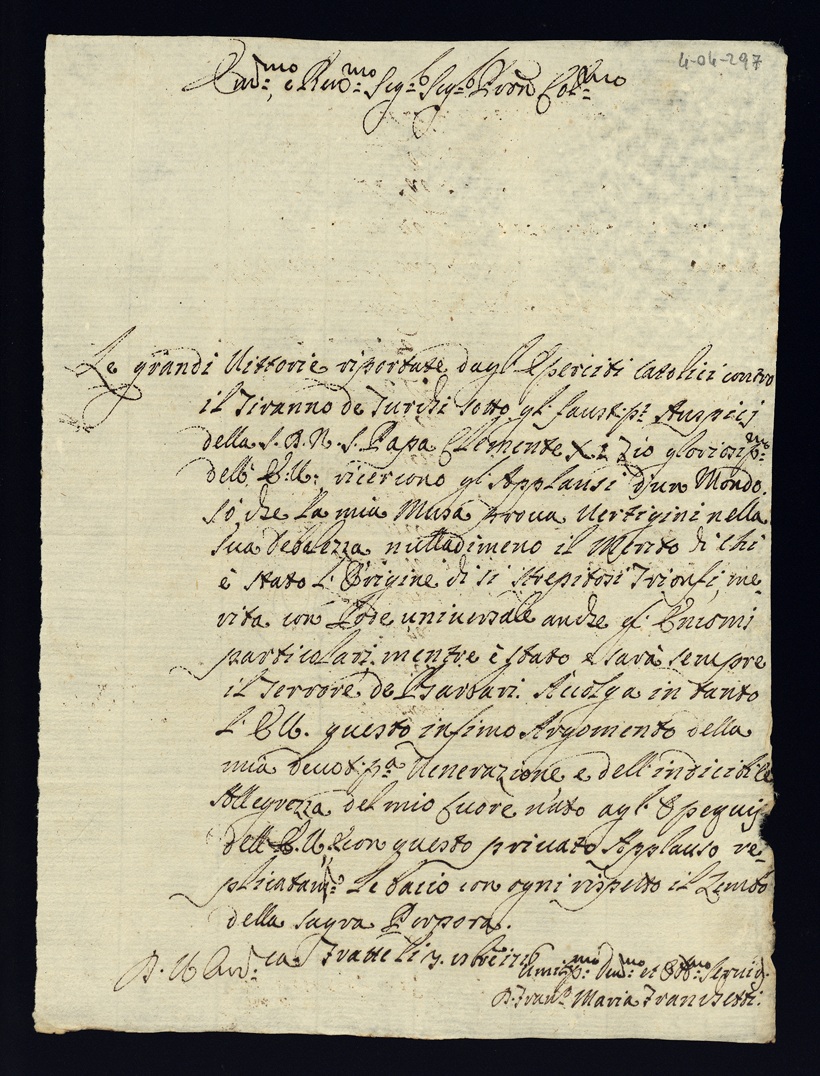 4-04-297
Em.mo e Rev.mo Sig.r Sig.r Pron Col.mo
Le grandi Vittorie riportate dagl' Eserciti Catolici contro
il Tiranno de Turchi sotto gl' faust.mi Auspicij
della S. di N. S. Papa Clemente X. Zio gloriosis.mo
dell' E. V. ricercono gl' Applausi d'un Mondo.
Sò che la mia Musa proua Vertigini nella
sua debolezza nulladimeno il Merito di chi
è stato l' Origine di si strepitosi Trionfi, me-
rita con Lode universale anche gl' Encomi
particolari, mentre è stato e sarà sempre
il Terrore de Barbari. Accolga in tanto
l' E. V. questo infimo Argomento della
mia deuotis.ma Venerazione e dell' indicibile
Allegrezza del mio Cuore nato agl' Ossequij
dell' E. V. e con questo priuato Applauso re-
plicatam.te le bacio con ogni rispetto il Lembo
della sagra Porpora.
D. V. Em.za Fratte li 7.
Umilis.mo Deu.mo et Obb.mo Seruid.
D. Fran.co Maria Franchetti.